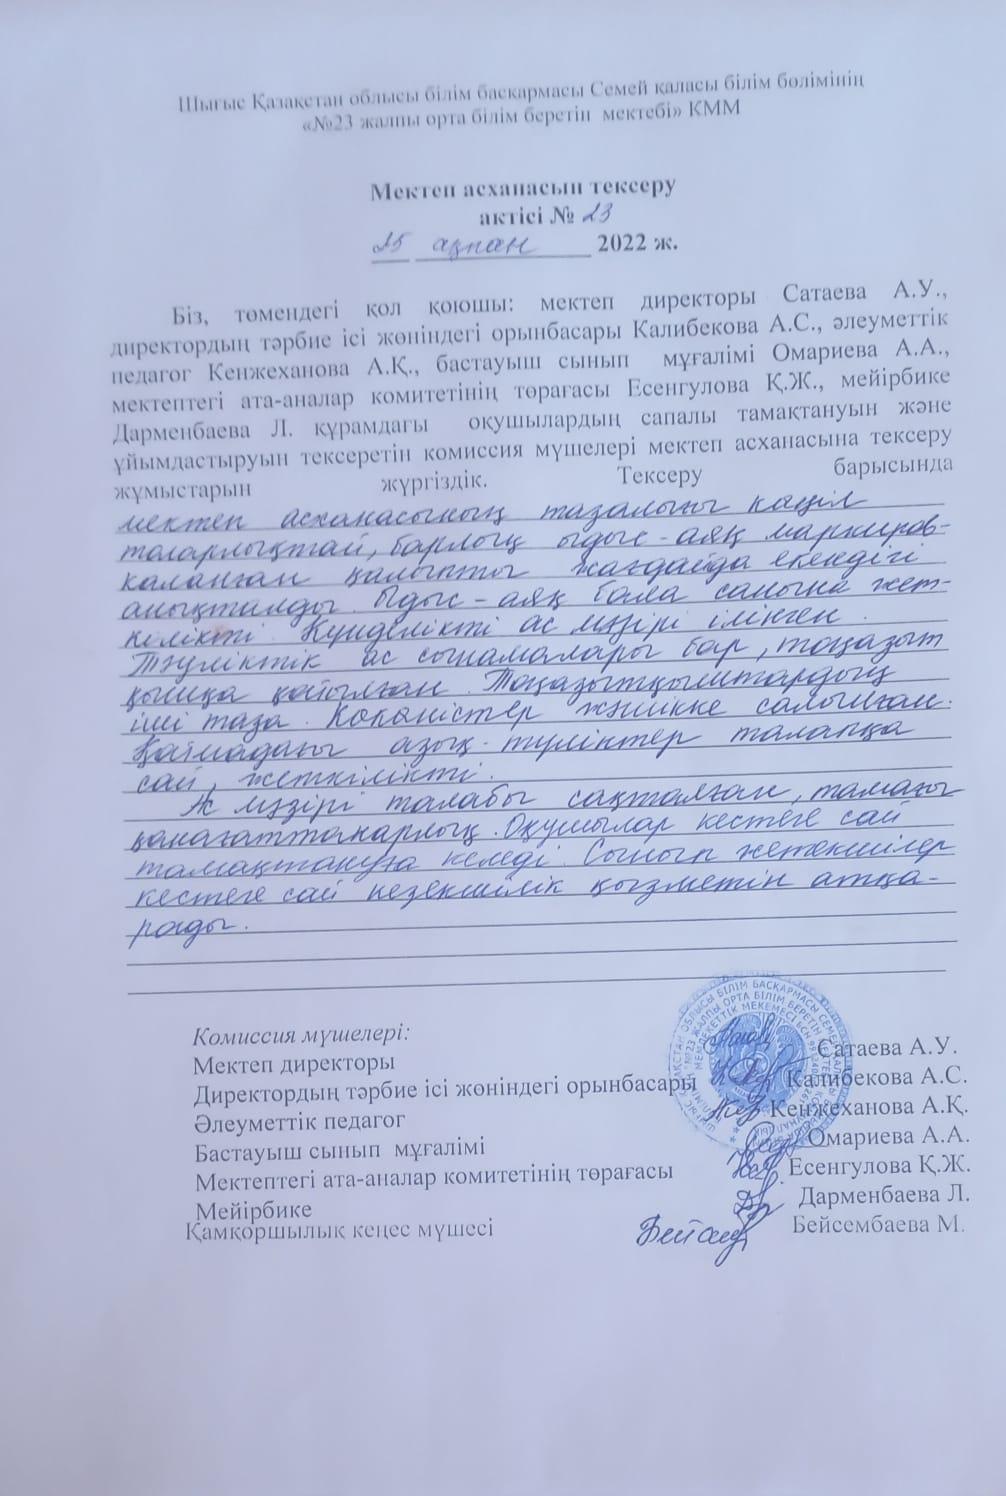 Шығыс Қазақстан облысы білім басқармасы Семей қаласы білім бөлімінің
«№23 жалпы орта білім беретін мектебі» КММ
Мектеп асханасын тексеру
актісі № 23
25 ақпан 2022 ж.
Біз, төмендегі қол қоюшы: мектеп директоры Сатаева А.У.,
директордың тәрбие ісі жөніндегі орынбасары Калибекова А.С., әлеуметтік
педагог Кенжеханова А.Қ., бастауыш сынып мұғалімі Омариева А.А.,
мектептегі ата-аналар комитетінің төрағасы Есенгулова Қ.Ж., мейірбике
Дарменбаева Л. құрамдағы оқушылардың сапалы тамақтануын және
ұйымдастыруын тексеретін комиссия мүшелері мектеп асханасына тексеру
жұмыстарын жүргіздік. Тексеру барысында
мектеп асханасының тазалығы көңіл
толарлықтай, барлық ыдыс-аяқ маркиров-
каланған қалыпты жағдайда екендігі
анықталды. Ыдыс-аяқ бала санына жет-
кілікті. Күнделікті ас мәзірі ілінген.
Тәуліктік ас сынамалары бар, тоңазыт
қышқа қойылған. Тоңазытқыштардың
іші таза. Көкөністер жәшікке салынған.
Қоймадағы азық-түліктер талапқа
сай, жеткілікті.
Ас мәзірі талабы сақталған, тамағы
қанағаттанарлық. Оқушылар кестеге сай
тамақтануға келеді. Сынып жетекшілер
кестеге сай кезекшілік қызметін атқа-
рады.
Комиссия мүшелері:
Мектеп директоры Сатаева А.У.
Директордың тәрбие ісі жөніндегі орынбасары Калибекова А.С.
Әлеуметтік педагог Кенжеханова А.Қ.
Бастауыш сынып мұғалімі Омариева А.А.
Мектептегі ата-аналар комитетінің төрағасы Есенгулова Қ.Ж.
Мейірбике Дарменбаева Л.
Қамқоршылық кеңес мүшесі Бейсембаева М.